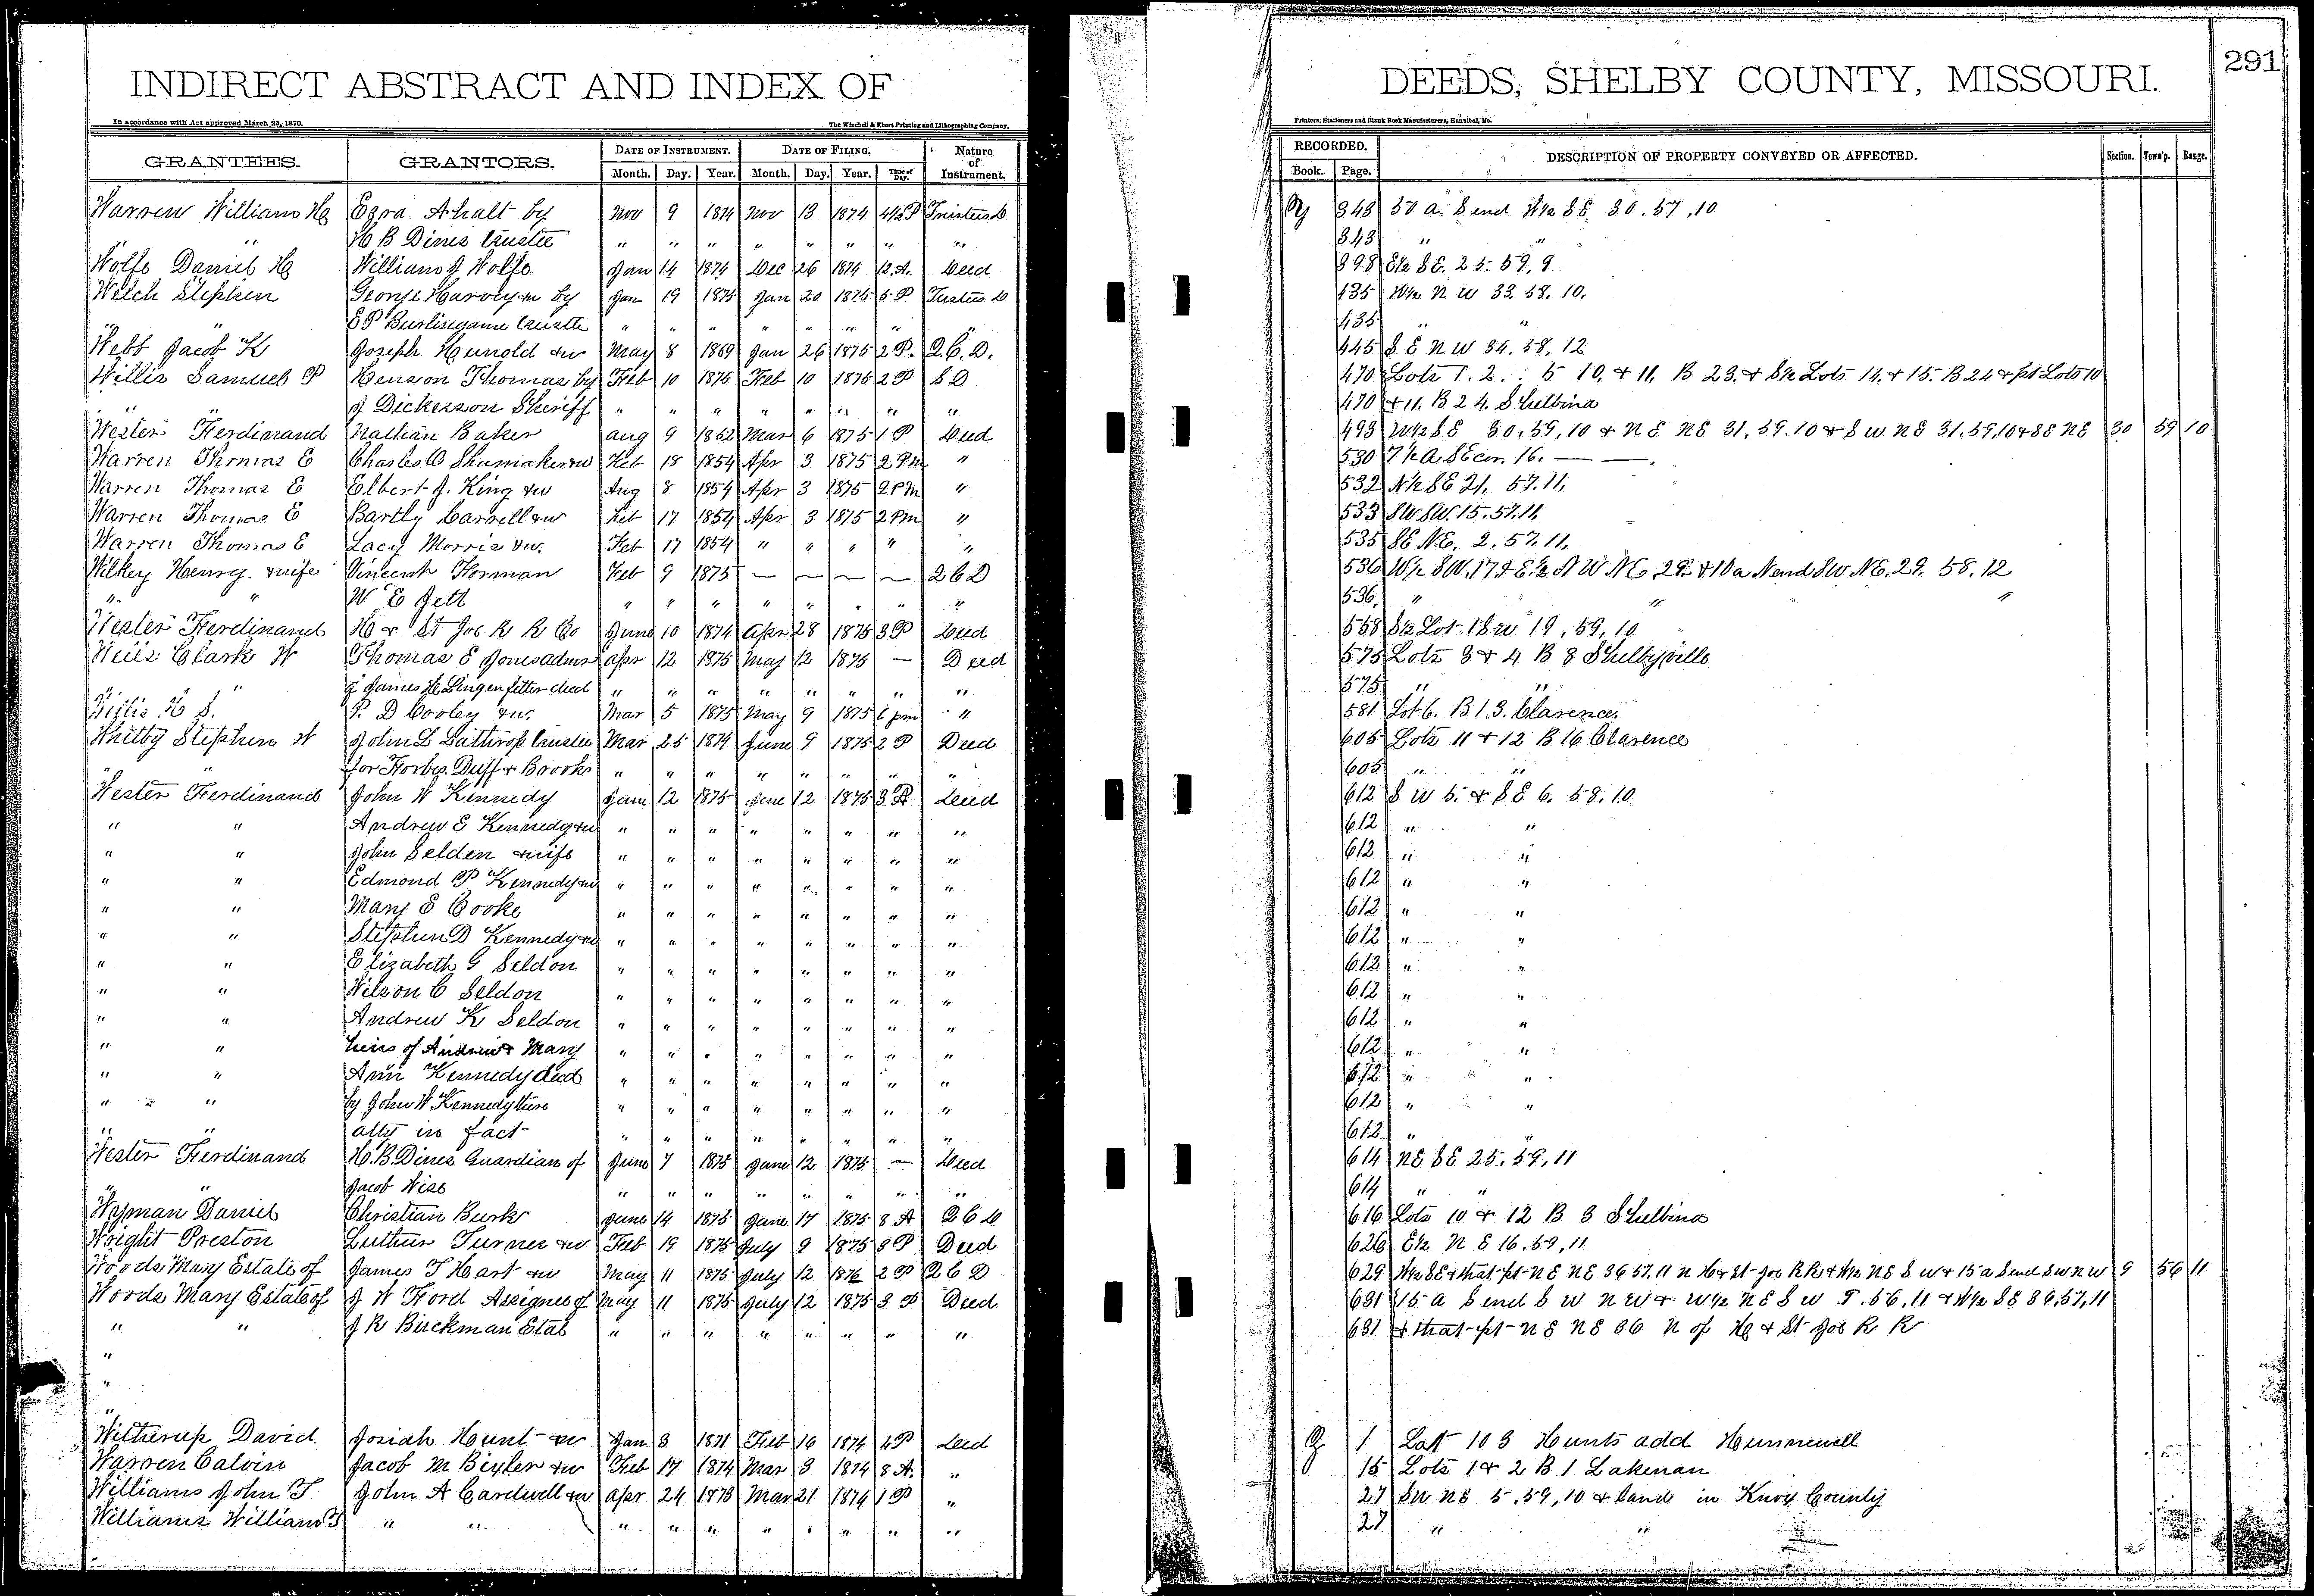 INDIRECT ABSTRACT AND INDEX OF DEEDS, SHELBY COUNTY, MISSOURI. 291
In accordance with Act approved March 25, 1870. The Winchell & Ebert Printing and Lithographing Company, Printers, Stationers and Blank Book Manufacturers, Hannibal, Mo.
GRANTEES. GRANTORS. DATE OF INSTRUMENT. DATE OF FILING. Nature of Instrument. RECORDED. DESCRIPTION OF PROPERTY CONVEYED OR AFFECTED. Section. Town'p. Range.
Month. Day. Year. Month. Day. Year. Time of Day. Book. Page.
Warren William H Ezra Ahalt by Nov 9 1874 Nov 13 1874 4½P Trustees D 343 50 a. S end W½ SE 30.57.10
H B Dines Trustee " " " " " " " " 343 " "
Wolfe Daniel H William J Wolfe Jan 14 1874 Dec 26 1874 12.A. Deed 398 E½ SE. 25.59.9
Welch Stephen George Harvey &w by Jan 19 1875 Jan 20 1875 5 P Trustees D 435 W½ N W 33.58.10.
" " E P Burlingame Trustee " " " " " " " " 435 " "
Webb Jacob K Joseph Hunold &w May 8 1869 Jan 26 1875 2 P. Q.C.D. 445 S E N W 34.58.12
Willis Samuel P Henson Thomas by Feb 10 1875 Feb 10 1875 2 P S D 470 Lots 1. 2. 5 10. & 11. B 23. & S½ Lots 14. & 15. B 24 & pt Lots 10
" " J Dickerson Sheriff " " " " " " " " 470 & 11. B 24. Shelbina
Wester Ferdinand Nathan Baker Aug 9 1862 Mar 6 1875 1 P Deed 493 W½ SE 30.59.10 & NE NE 31.59.10 & S W NE 31.59.10 & SE NE 30 59 10
Warren Thomas E Charles O Shumaker &w Feb 18 1854 Apr 3 1875 2 Pm " 530 7½ A SE cor. 16. — —
Warren Thomas E Elbert J. King &w Aug 8 1854 Apr 3 1875 2 PM " 532 N½ SE 21. 57.11.
Warren Thomas E Bartly Carrell &w Feb 17 1854 Apr 3 1875 2 Pm " 533 SW SW. 15.57.11.
Warren Thomas E Lacy Morris &w. Feb 17 1854 " " " " " 535 SE NE. 2.57.11.
Wilkey Henry & wife Vincent Forman Feb 9 1875 — — — — Q C D 536 W½ SW. 17 & E½ N W NE 29. & 10 a N end SW NE. 29. 58.12
" " W E Jett " " " " " " " " 536. " " "
Wester Ferdinand H & St Jos. R R Co June 10 1874 Apr 28 1875 3 P Deed 558 S½ Lot 1 SW 19.59.10
Clark W Thomas E Jones admr Apr 12 1875 May 12 1875 — Deed 575 Lots 3 & 4 B 8 Shelbyville
" of James H Lingenfelter decd " " " " " " " " 575 " "
Willis H S. P. D Cooley &w. Mar 5 1875 May 9 1875 6 pm " 581 Lot 6. B 13. Clarence.
Whitby Stephen W John L Lathrop Trustee Mar 25 1874 June 9 1875 2 P Deed 605 Lots 11 & 12 B 16 Clarence
" " for Forbes Duff & Brooks " " " " " " " " 605 " "
Wester Ferdinand John W Kennedy June 12 1875 June 12 1875 3 P Deed 612 S W 5. & S E 6. 58.10
" " Andrew E Kennedy &w " " " " " " " " 612 " "
" " John Selden & wife " " " " " " " " 612 " "
" " Edmond P Kennedy &w " " " " " " " " 612 " "
" " Mary E Cooke " " " " " " " " 612 " "
" " Stephen D Kennedy &w " " " " " " " " 612 " "
" " Elizabeth G Seldon " " " " " " " " 612 " "
" " Wilson C Seldon " " " " " " " " 612 " "
" " Andrew K Seldon " " " " " " " " 612 " "
" " heirs of Andrew & Mary " " " " " " " " 612 " "
" " Ann Kennedy decd " " " " " " " " 612 " "
" " by John W Kennedy their " " " " " " " " 612 " "
" " atty in fact " " " " " " " " 612 " "
Wester Ferdinand H.B. Dines Guardian of June 7 1875 June 12 1875 — Deed 614 NE SE 25.59.11
" " Jacob Wise " " " " " " " " 614 " "
Wyman Daniel Christian Burk June 14 1875 June 17 1875 8 A Q C D 616 Lots 10 & 12 B 3 Shelbina
Wright Preston Luther Turner &w Feb 19 1875 July 9 1875 3 P Deed 626 E½ N E 16.59.11
Woods Mary Estate of James T Hart &w May 11 1875 July 12 1875 2 P Q C D 629 W½ SE & that pt NE NE 36 57.11 n H & St Jos R R & W½ NE S W & 15 a S end S W N W 9 56 11
Woods Mary Estate of J W Ford Assignee of May 11 1875 July 12 1875 3 P Deed 631 15 A S end S W N W & W½ NE S W 9.56.11 & W½ SE 36.57.11
" " J R Birckman Etal " " " " " " " " 631 & that pt NE NE 36 N of H & St Jos R R
"
"
"
Witherup David Josiah Hunt &w Jan 3 1871 Feb 16 1874 4 P Deed 1 Lot 103 Hunts add Hunnewell
Warren Calvin Jacob M Bixler &w Feb 17 1874 Mar 3 1874 8 A. " 15 Lots 1 & 2 B 1 Lakenan
Williams John T John A Cardwell &w Apr 24 1873 Mar 21 1874 1 P " 27 SW NE 5.59.10 & land in Knox County
Williams William T " " " " " " " " " " 27 " "